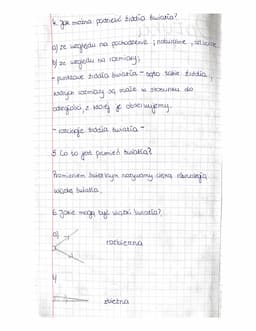 4. Jak można podzielić źródła światła?
a) ze względu na pochodzenie; naturalne, sztuczne
b) ze względu na rozmiary;
- punktowe źródła światła - są to takie źródła,
których rozmiary są małe w stosunku do
odległości, z której je obserwujemy.
- rozciągłe źródła światła -
5. Co to jest promień światła?
Promieniem świetlnym nazywamy cienką
wiązkę światła.
6. Jakie mogą być wiązki światła?
a)
rozbieżna
b)
zbieżna